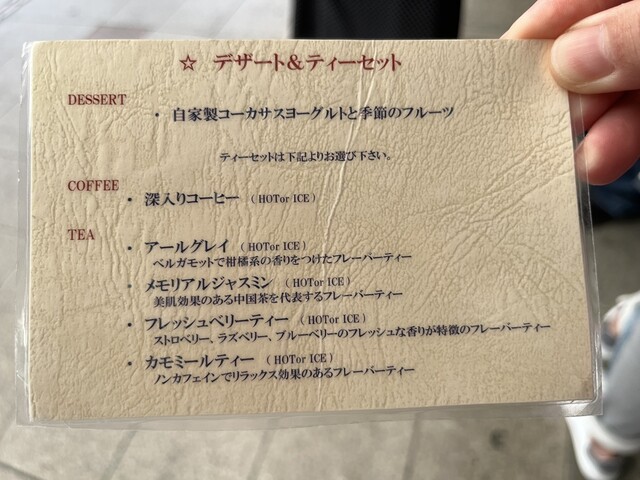 ☆ デザート&ティーセット
DESSERT
・自家製コーカサスヨーグルトと季節のフルーツ
ティーセットは下記よりお選び下さい。
COFFEE
・深入りコーヒー (HOTor ICE)
TEA
・アールグレイ (HOTor ICE)
ベルガモットで柑橘系の香りをつけたフレーバーティー
・メモリアルジャスミン (HOTor ICE)
美肌効果のある中国茶を代表するフレーバーティー
・フレッシュベリーティー (HOTor ICE)
ストロベリー、ラズベリー、ブルーベリーのフレッシュな香りが特徴のフレーバーティー
・カモミールティー (HOTor ICE)
ノンカフェインでリラックス効果のあるフレーバーティー